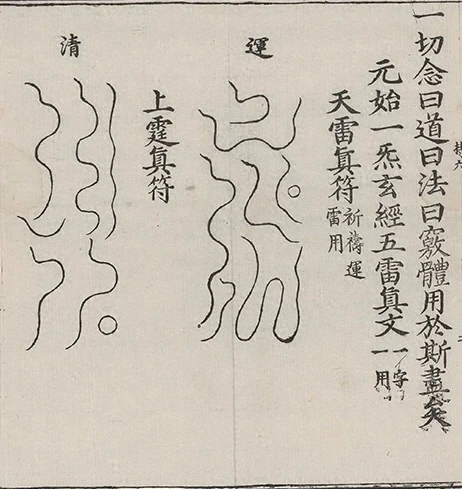 一切念曰道曰法曰竅體用於斯盡矣
元始一炁玄經五雷眞文一字一用
天雷眞符祈禱運雷用
運
上霆眞符
清